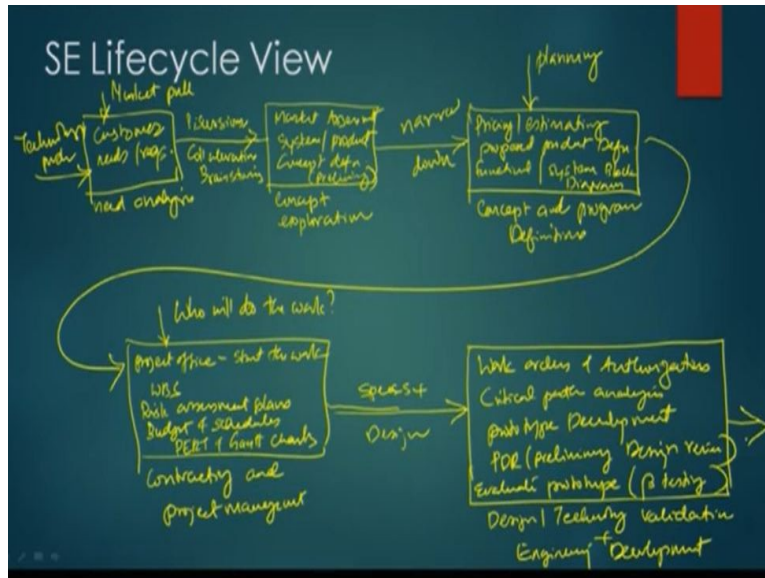 SE Lifecycle View
Market pull
Technology
push
Customer
needs / reqs.
need analysis
Discussions
Collaboration
Brainstorming
Market Assessment
System / product
Concept defn.
(preliminary)
Concept
exploration
narrow
down
planning
Pricing / estimating
proposed product Defn
Functional / System Block
Diagrams
Concept and program
Definitions
Who will do the work?
project office - start the work
WBS
Risk assessment plans
Budget & schedules
PERT & Gantt charts
Contracting and
project management
Specs +
Design
Work orders & Authorizations
Critical path analysis
prototype Development
PDR (preliminary Design review)
Evaluate prototype (β testing)
Design / Technology Validation
+
Engineering Development